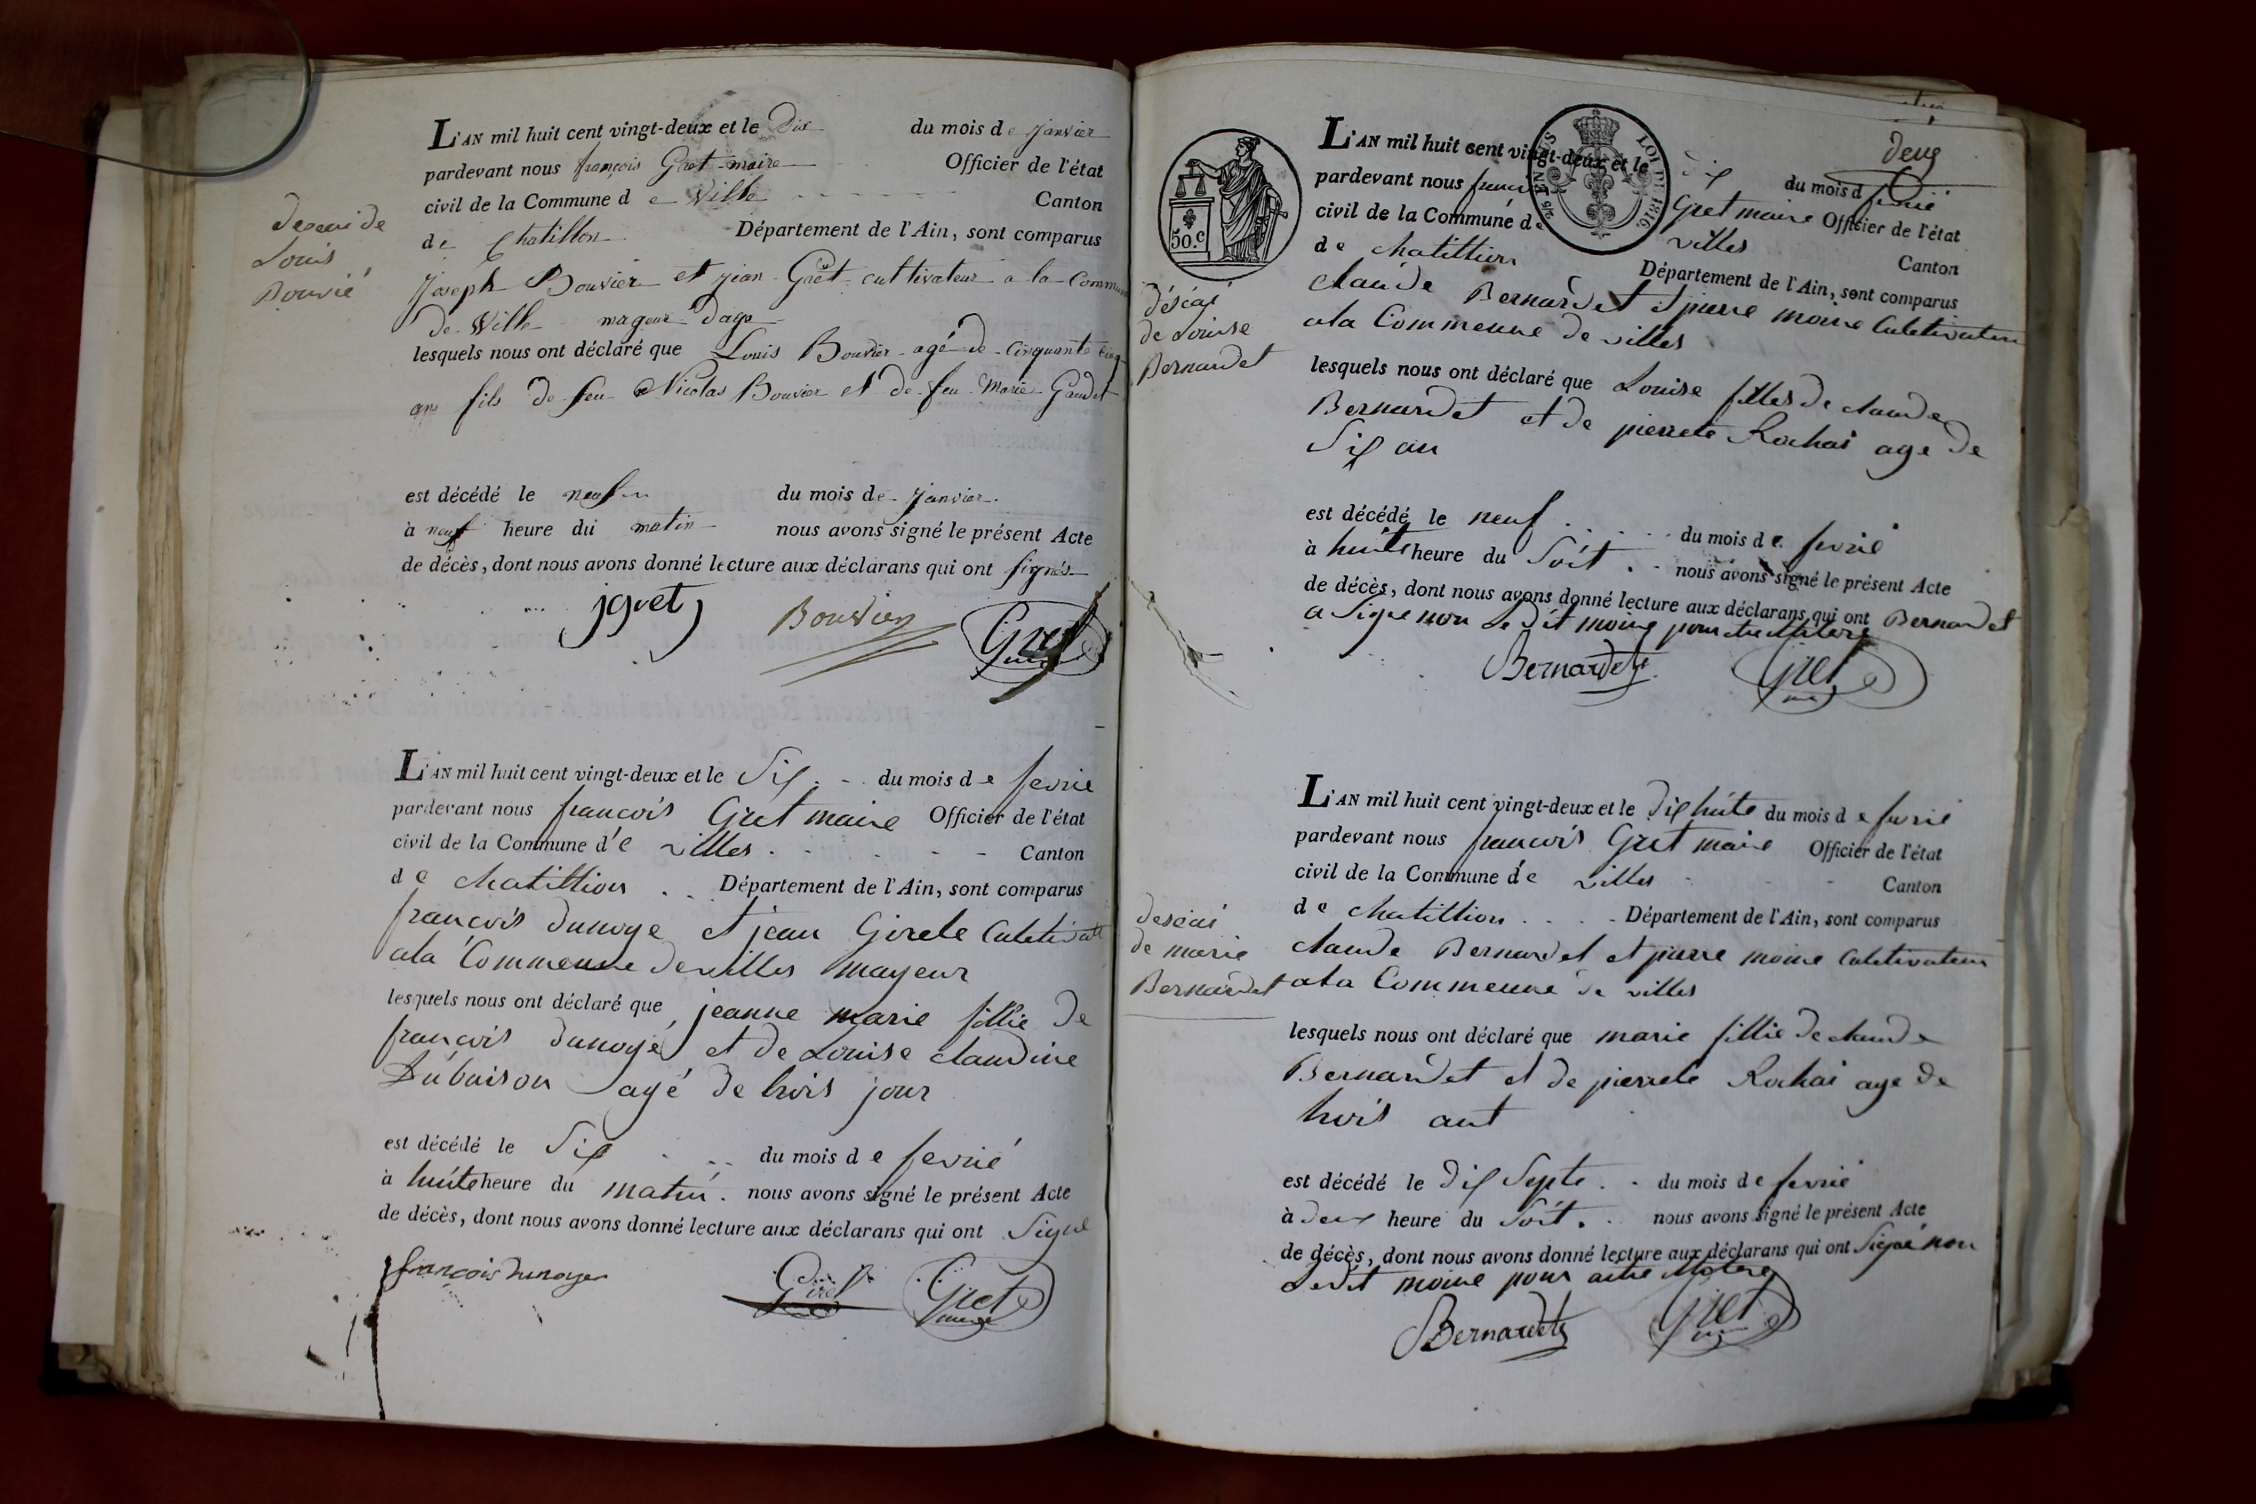 L'AN mil huit cent vingt-deux et le Dix du mois de janvier
pardevant nous françois Gret maire Officier de l'état
civil de la Commune de Ville Canton
de Chatillon Département de l'Ain, sont comparus
Joseph Bouvier et jean Gret cultivateur a la Commune
de Ville mageur dage
lesquels nous ont déclaré que Louis Bouvier agé de cinquante cinq
ans fils de feu Nicolas Bouvier et de feu Marie Gaudet
est décédé le neuf du mois de janvier
à neuf heure du matin nous avons signé le présent Acte
de décès, dont nous avons donné lecture aux déclarans qui ont signés
jgret Bouvier Gret
Louis
Bouvié
L'AN mil huit cent vingt-deux et le Six du mois de fevrie
pardevant nous francois Gret maire Officier de l'état
civil de la Commune de villes Canton
de chatillion Département de l'Ain, sont comparus
francois dunoye et jean Girele
ala Commeune de villes mayeur
lesquels nous ont déclaré que jeanne marie fillie de
francois dunoyé et de Louise claudine
Dubuison agé de trois jour
est décédé le Six du mois de fevrié
à huite heure du matin nous avons signé le présent Acte
de décès, dont nous avons donné lecture aux déclarans qui ont Signé
francois dunoyer Gret maire
deux
50.c
LOI DE 1816
L'AN mil huit cent vingt-deux et le dix du mois de fevrié
pardevant nous francois Gret maire Officier de l'état
civil de la Commune de villes Canton
de chatillion Département de l'Ain, sont comparus
claude Bernardet et pierre moine Culetivateur
ala Commeune de villes
lesquels nous ont déclaré que Louise filles de claude
Bernardet et de pierrete Rochai age de
Six an
est décédé le neuf du mois de fevrié
à huite heure du Soit nous avons signé le présent Acte
de décès, dont nous avons donné lecture aux déclarans qui ont Bernardet
a Signe non Le dit moine pour
Bernardet Gret
déséai
de Louise
Bernardet
L'AN mil huit cent vingt-deux et le dix huite du mois de fevrié
pardevant nous francois Gret maire Officier de l'état
civil de la Commune de villes Canton
de chatillion Département de l'Ain, sont comparus
claude Bernardet et pierre moine Culetivateur
ala Commeune de villes
lesquels nous ont déclaré que marie fillie de claude
Bernardet et de pierrete Rochai age de
trois ant
est décédé le dix Septe du mois de fevrié
à deux heure du Soit nous avons signé le présent Acte
de décès, dont nous avons donné lecture aux déclarans qui ont Signé non
Ledit moine pour
Bernardet Gret
deséai
de marie
Bernardet